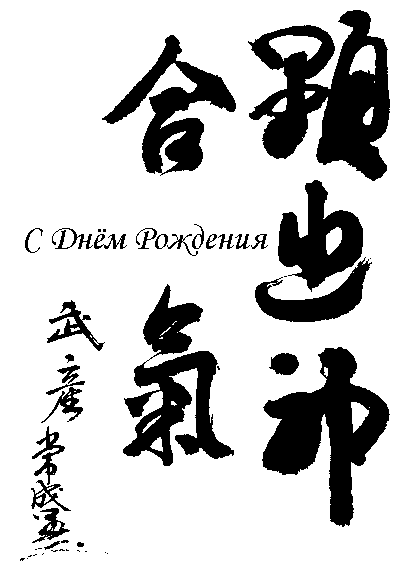 顕幽神
合氣
С Днём Рождения
武産常盛